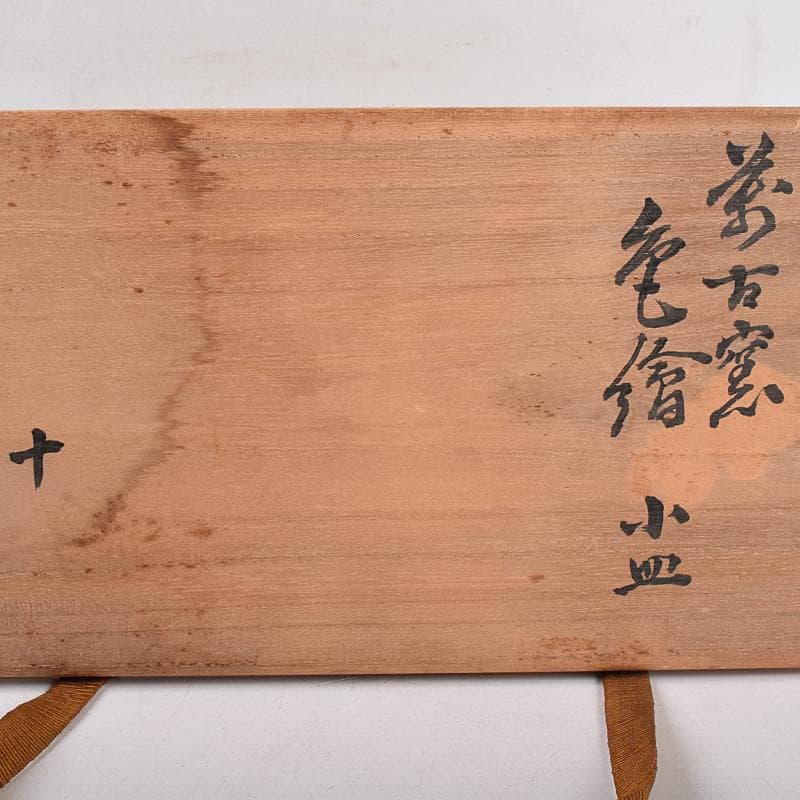 萬古窯
色繪 小皿
十